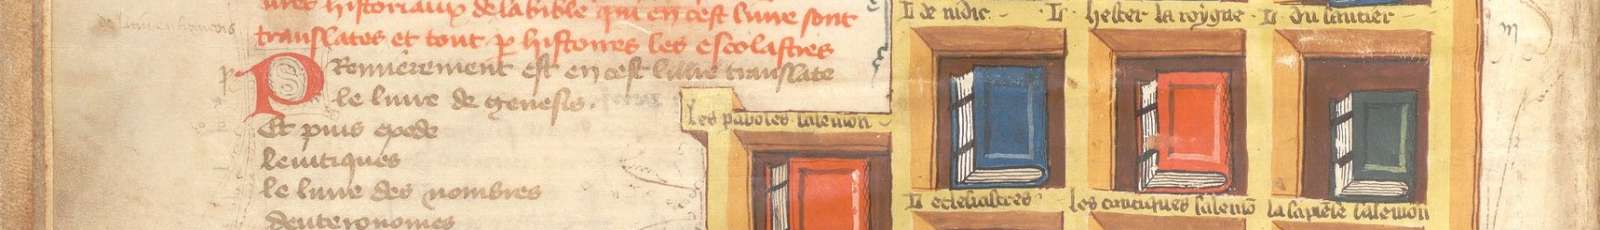 ures historiaux de la bible qui en cest liure sont
translates et tout p histoires les escolastres
Premierement est en cest liure translate
le liure de genesis.
Et puis exode
leuitiques
le liure des nombres
deuteronomes
L de iudic
L hester la roygne
L du sautier
Les paboles salemon
L eclesiastres
les cantiques salemo
la sapiese salemon